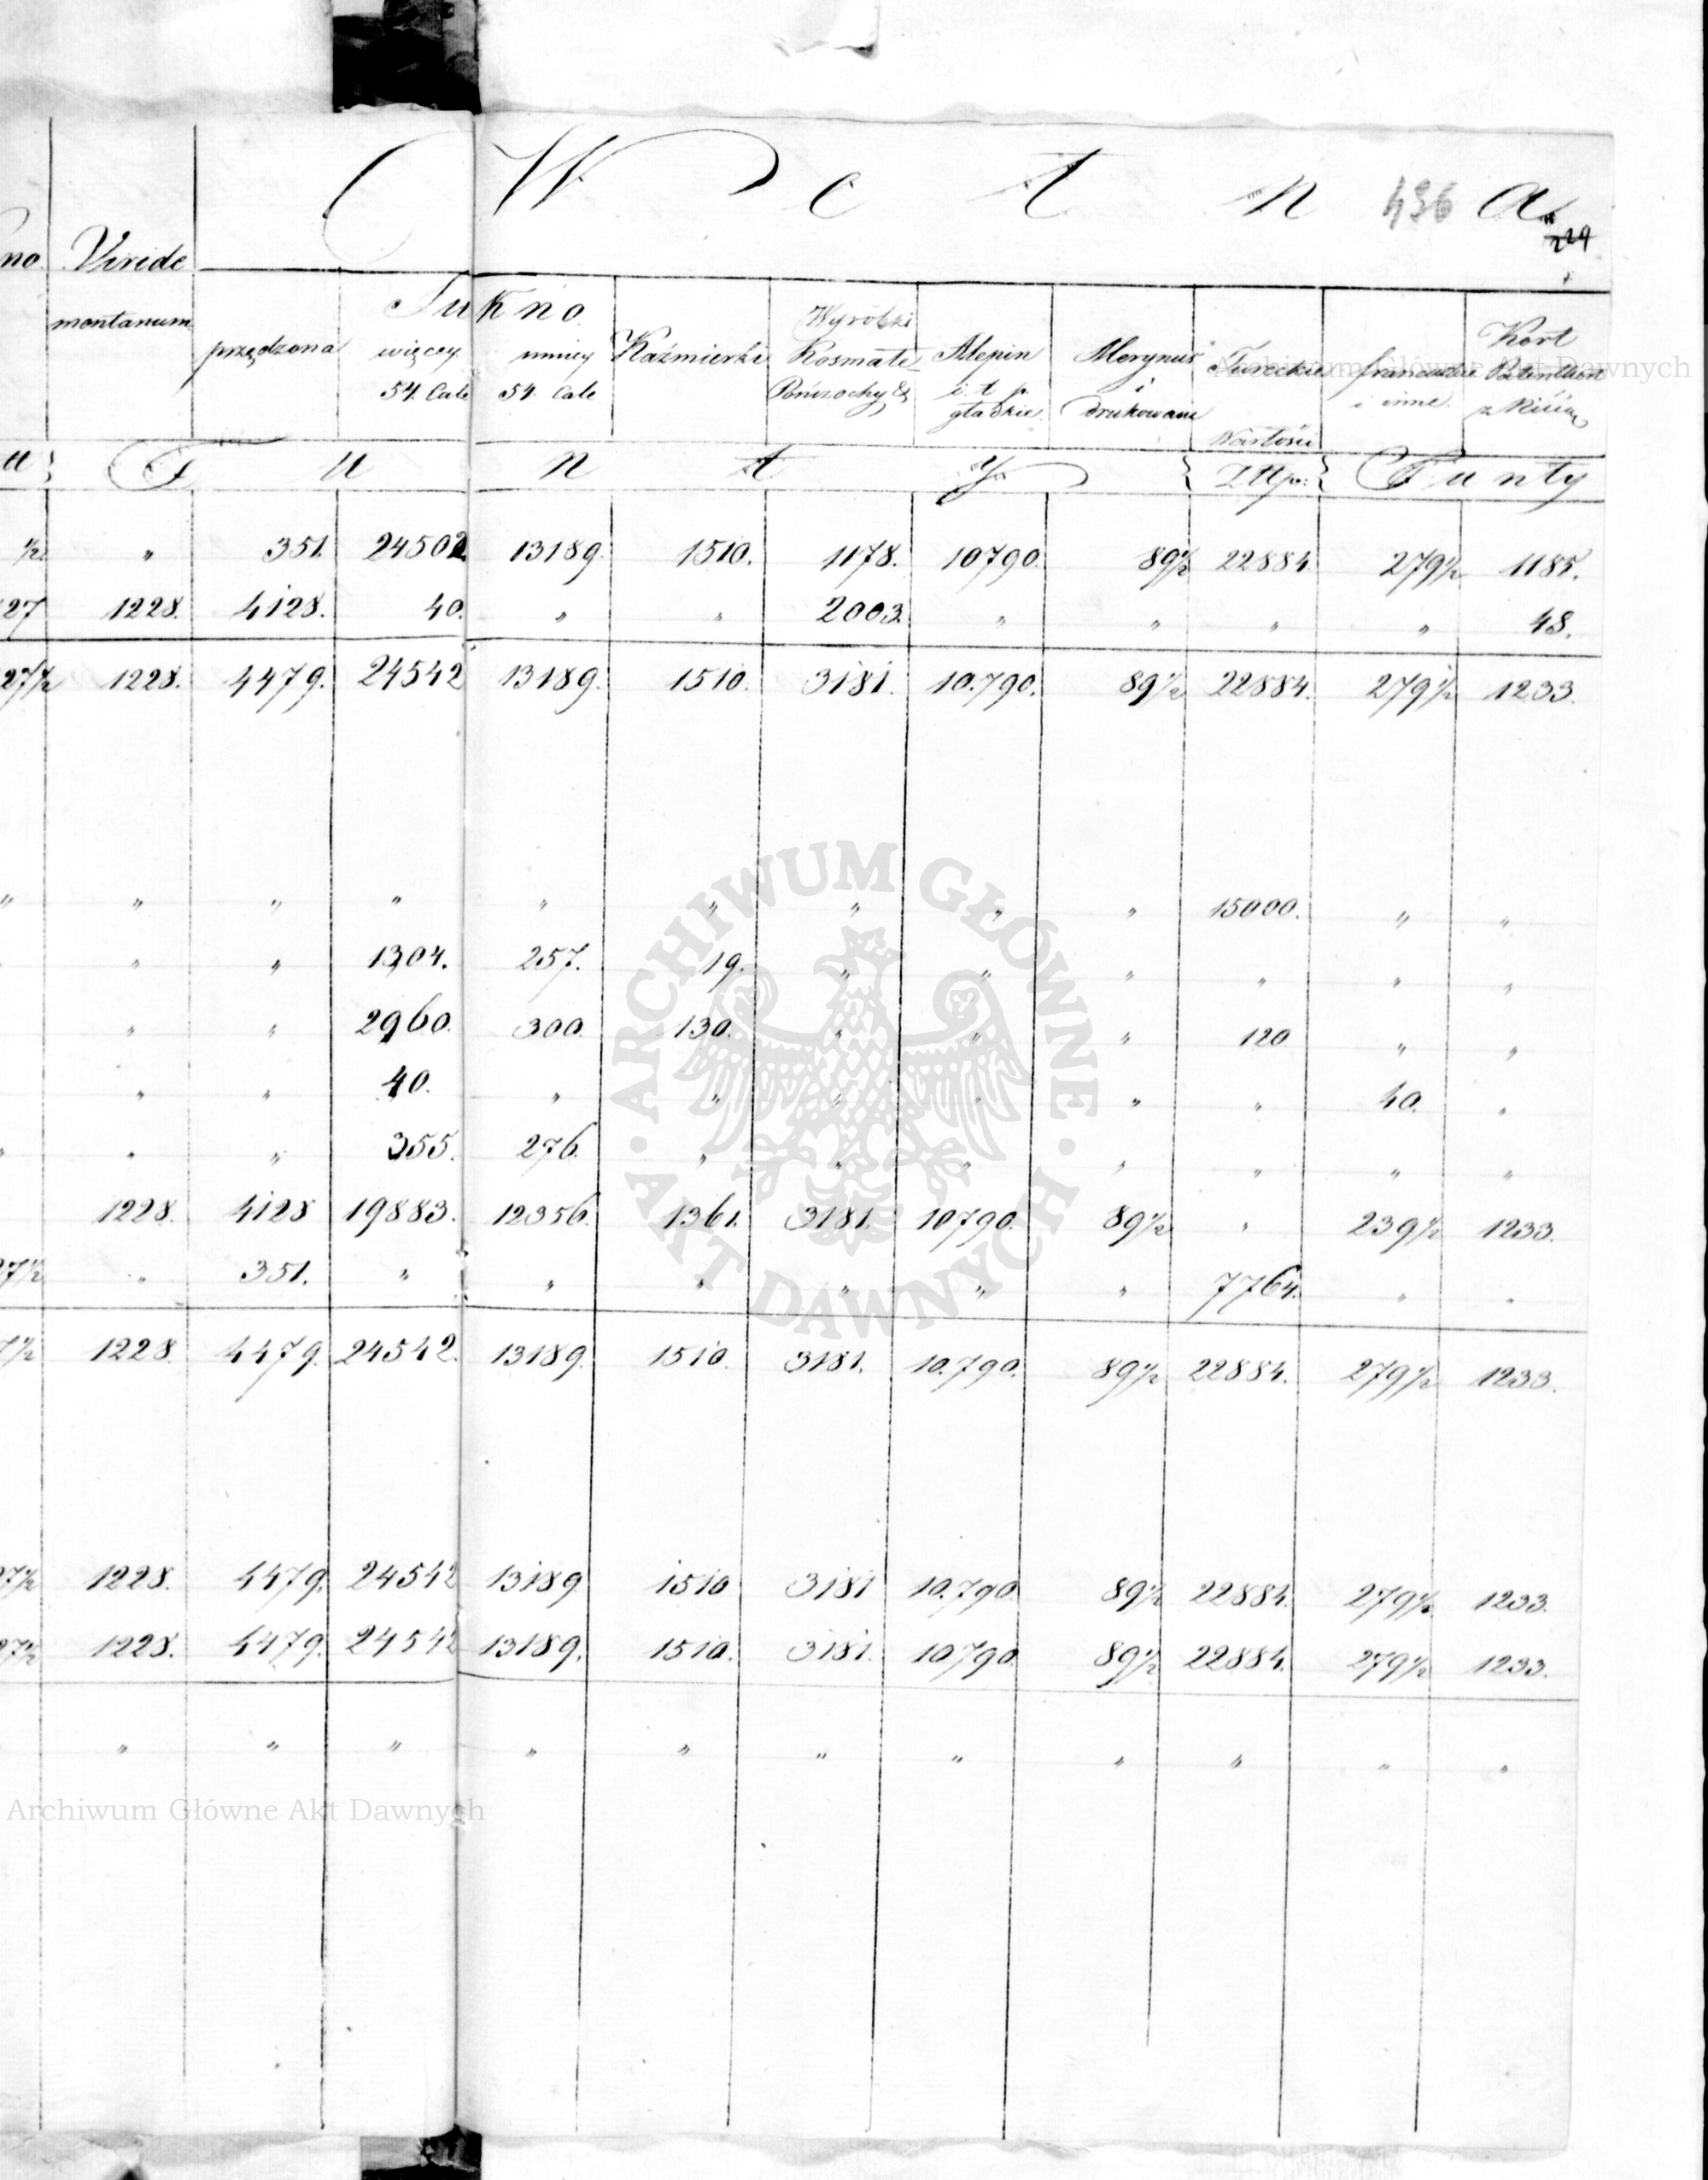 W e ł n a 436
224
no Viride
montanum
Sukno
przędzona więcey 54. Cale mniey 54. Cale Kaźmierki Wyróbki Kosmate Pończochy & Alepin i t. p. gładkie Merynus i drukowane Tureckie Wartości francuzkie i inne Kort z Nicią
F u n t y Złłp: Funty
½ " 351. 24502 13189. 1510. 1178. 10790. 89½ 22884 279½ 1185.
27 1228. 4128. 40. " " 2003. " " " " 48.
27½ 1228. 4479. 24542 13189. 1510. 3181. 10.790. 89½ 22884. 279½ 1233.
" " " " " " " " " 15000. " "
" " 1304. 257. 19. " " " " " "
" " 2960. 300. 130. " " " 120 " "
" " 40. " " " " " " 40. "
" " " 355. 276. " " " " " " "
1228. 4128 19883. 12356. 1361. 3181. 10790. 89½ " 239½ 1233.
27½ " 351. " " " " " " 7764. " "
7½ 1228. 4479. 24542. 13189. 1510. 3181. 10.790. 89½ 22884. 279½ 1233.
27½ 1228. 4479. 24542 13189 1510 3181 10.790 89½ 22884. 279½ 1233.
27½ 1228. 4479. 24542 13189. 1510. 3181. 10790. 89½ 22884. 279½ 1233.
" " " " " " " " " " "
Archiwum Główne Akt Dawnych
Archiwum Główne Akt Dawnych
· ARCHIWUM GŁÓWNE · AKT DAWNYCH